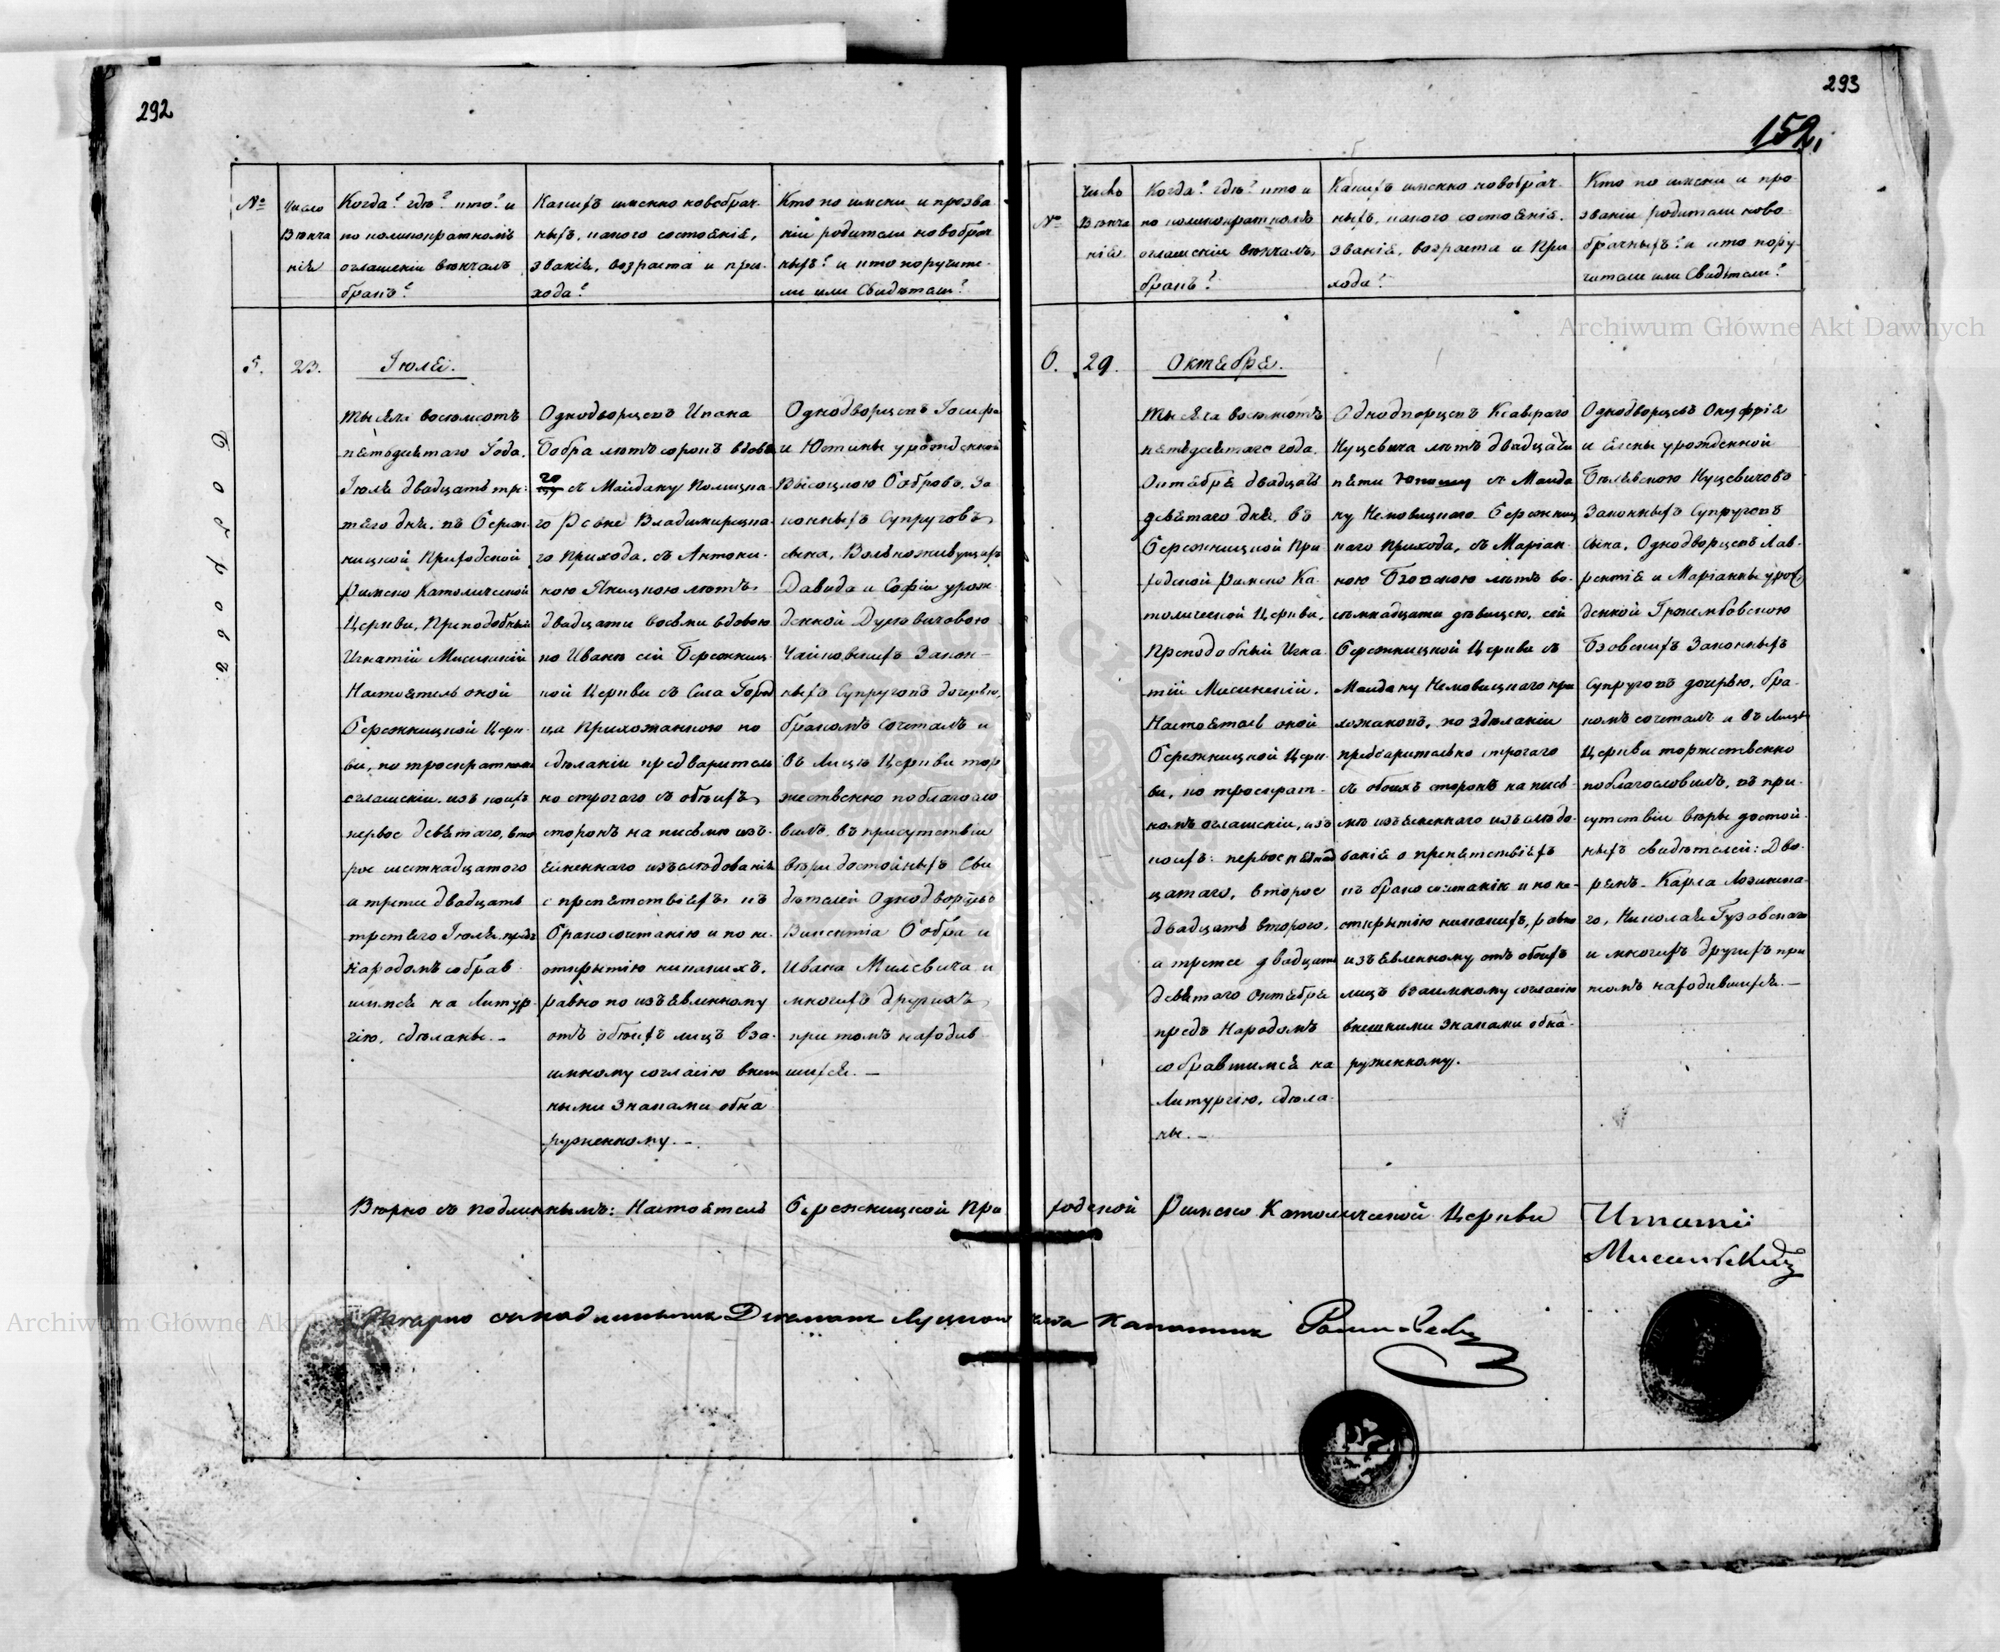 292
№
Число Вѣнчанія
Когда? гдѣ? кто? и
по коликократномъ
оглашеніи вѣнчалъ
бракъ?
Какихъ именно новобрач-
ныхъ, какого состоянія,
званія, возраста и при-
хода?
Кто по имени и прозва
ніи родители новобрач
ныхъ? и кто поручите-
ли или Свидѣтели?
5.
23.
Іюля.
тысяча восемсотъ
пятьдесятаго Года,
Іюля двадцать тре-
тяго дня, въ Береж-
ницкой Приходской
Римско Католической
Церкви, Преподобный
Игнатій Мисинскій
Настоятель оной
Бережницкой Церк-
ви, по троекратномъ
оглашеніи, изъ коихъ
первое девятаго, вто
рое шестнадцатого
а третіе двадцать
третяго Іюля предъ
народомъ собрав-
шимся на Литур-
гію, сдѣланы.-
Однодворцевъ Ивана
Бобра лѣтъ сорокъ вдов
го съ Майдану
го Владимирецка-
го прихода, съ Антони-
ною лѣтъ
двадцати восьми вдовою
по Иванѣ сей Бережниц
кой Церкви съ Села Город
ца Прихожанкою по
сдѣланіи предваритель
но строгаго съ обоихъ
сторонъ на письмѣ изъ-
ясненнаго изъслѣдованія
о препятствіяхъ къ
бракосочетанію и по не-
открытію никакихъ,
равно по изъявленному
отъ обоихъ лицъ вза-
имному согласію внеш
ными знаками обна
руженному.-
Однодворцевъ Іосифа
и Юстины урожденной
Высоцкою Бобровъ, за
конныхъ Супруговъ
сына, Вольноживущихъ
Давида и Софіи урож-
денной
Закон-
ныхъ Супруговъ дочерью,
бракомъ сочеталъ и
въ Лицѣ Церкви тор
жественно поблагосло
вилъ, въ присутствіи
вѣры достойныхъ Сви
дѣтелей Однодворцевъ
Викентія Бобра и
Ивана Милевича и
многихъ другихъ
при томъ находив
шихся.-
Вѣрно съ подлиннымъ: Настоятель Бережницкой При
293
152.
№
Число Вѣнчанія
Когда? гдѣ? кто и
по коликократномъ
оглашеніи вѣнчалъ
бракъ?
Какихъ именно новобрач-
ныхъ, какого состоянія,
званія, возраста и При
хода?
Кто по имени и про-
званіи родители ново-
брачныхъ? и кто пору
чители или Свидѣтели?
6.
29.
Октября.
тысяча восемсотъ
пятьдесятаго года,
Октября двадцать
девятаго дня, въ
Бережницкой При
ходской Римско Ка-
толической Церкви,
Преподобный Игна-
тій Мисинскій,
Настоятель оной
Бережницкой Церк-
ви, по троекрат-
номъ оглашеніи, изъ
коихъ: первое пятнад
цатаго, второе
двадцать второго,
а третіе двадцать
девятаго Октября
предъ Народомъ
собравшимся на
Литургію, сдѣла-
ны.-
Однодворцевъ Ксаверого
Куцевича лѣтъ двадцати
пяти юношу съ Майда
ну Бережниц
каго прихода, съ Маріан-
ною Бзовскою лѣтъ во-
сѣмнадцати дѣвицею, сей
Бережницкой Церкви съ
Майдану при
хожанокъ, по сдѣланіи
предварительно строгаго
съ обоихъ сторонъ на пись-
мѣ изъясненнаго изъслѣдо-
ванія о препятствіяхъ
къ бракосочетанію и по не-
открытію никакихъ, равно
изъявленному отъ обоихъ
лицъ взаимному согласію
внешними знаками обна-
руженному.
Однодворцевъ Онуфрія
и Елены урожденной
Куцевичово
Законныхъ Супруговъ
Сына, Однодворцевъ Лав-
рентія и Маріанны урож
денной Гржембовскою
Бзовскихъ Законныхъ
Супруговъ дочерью, бра-
комъ сочеталъ и въ Лицѣ
Церкви торжественно
поблагословилъ, въ при-
сутствіи вѣры достой-
ныхъ свидѣтелей: Дво-
рянъ. Карла
го, Николая Гузовскаго
и многихъ другихъ при
томъ находившихся.-
ходской Римско Католической Церкви Игнатій
Мисинскій
съ подлиннымъ Деканъ Луцкой
Каноникъ
Archiwum Główne Akt Dawnych
Archiwum Główne Akt